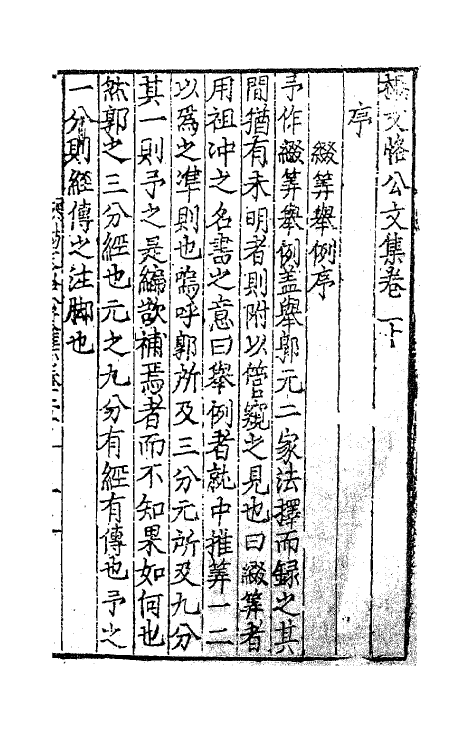 楊文恪公文集卷一十
序
綴筭舉例序
予作綴筭舉例盖舉郭元二家法擇而録之其
間猶有未明者則附以管窺之見也曰綴筭者
用祖冲之名書之意曰舉例者就中推筭一二
以爲之準則也嗚呼郭所及三分元所及九分
其一則予之是編欲補焉者而不知果如何也
然郭之三分經也元之九分有經有傳也予之
一分則經傳之注脚也